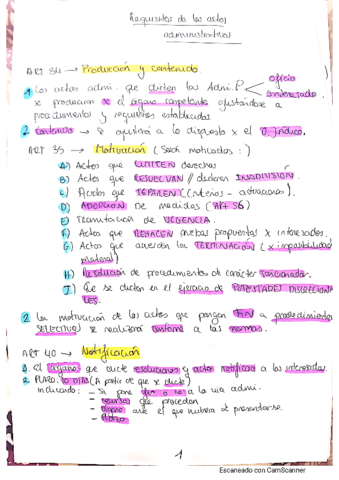 Requisitos de los actos
administrativos
ART 34 → Producción y contenido
1. Los actos admi. que dicten las Admi. P oficio
interesado
x producirán x el órgano competente ajustándose a
procedimiento y requisitos establecidos
2. contenido → se ajustará a lo dispuesto x el O. jurídico.
ART 35 → Motivación (Serán motivados:)
A) Actos que LIMITEN derechos
B) Actos que RESUELVAN / declaren INADMISIÓN.
C) Actos que SEPAREN (criterios - actuaciones)
D) ADOPCIÓN de medidas (ART 56)
E) Tramitación de URGENCIA.
F) Actos que RECHACEN pruebas propuestas x interesados
G) Actos que acuerdan la TERMINACIÓN (x imposibilidad
material)
H) Resolución de procedimientos de carácter sancionador.
I) Que se dicten en el ejercicio de POTESTADES DISCRECIONA
LES.
2. La motivación de los actos que pongan FIN a procedimientos
SELECTIVOS se realizará conforme a las normas.
ART 40 → Notificación
1. El órgano que dicte resoluciones y actos notificará a los interesados.
2. PLAZO: 10 DÍAS (A partir de que se dicte)
indicando: - Si pone fin o no a la vía admi.
- recursos que procedan
- órgano ante el que hubiera de presentarse.
- Plazo
1
Escaneado con CamScanner